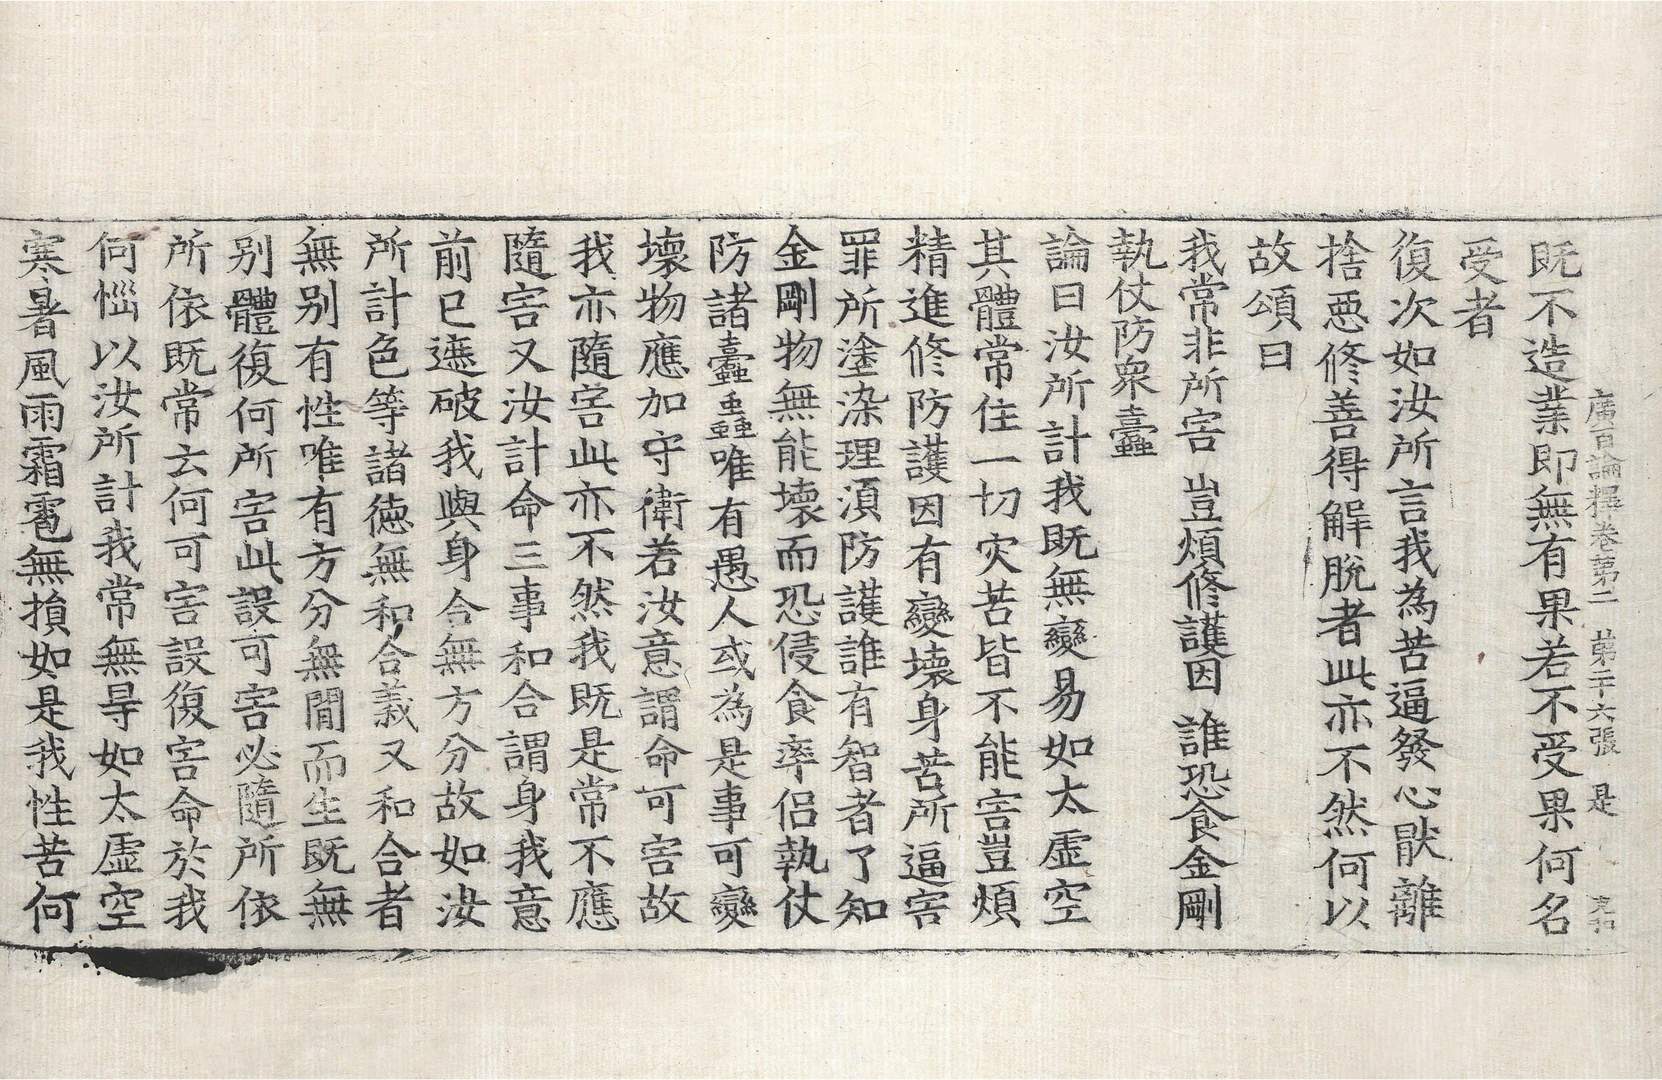 廣百論釋卷第二 第十六張 是
既不造業即無有果若不受果何名
受者
復次如汝所言我為苦逼發心猒離
捨惡修善得解脫者此亦不然何以
故頌曰
我常非所害 豈煩修護因 誰恐食金剛
執仗防衆蠹
論曰汝所計我既無變易如太虛空
其體常住一切灾苦皆不能害豈煩
精進修防護因有變壞身苦所逼害
罪所塗染理湏防護誰有智者了知
金剛物無能壞而恐侵食率侣執仗
防諸蠹蟲唯有愚人或為是事可變
壞物應加守衛若汝意謂命可害故
我亦隨害此亦不然我既是常不應
隨害又汝計命三事和合謂身我意
前已遮破我與身合無方分故如汝
所計色等諸德無和合義又和合者
無別有性唯有方分無間而生既無
別體復何所害此設可害必隨所依
所依既常云何可害設復害命於我
何惱以汝所計我常無㝵如太虛空
寒暑風雨霜雹無損如是我性苦何